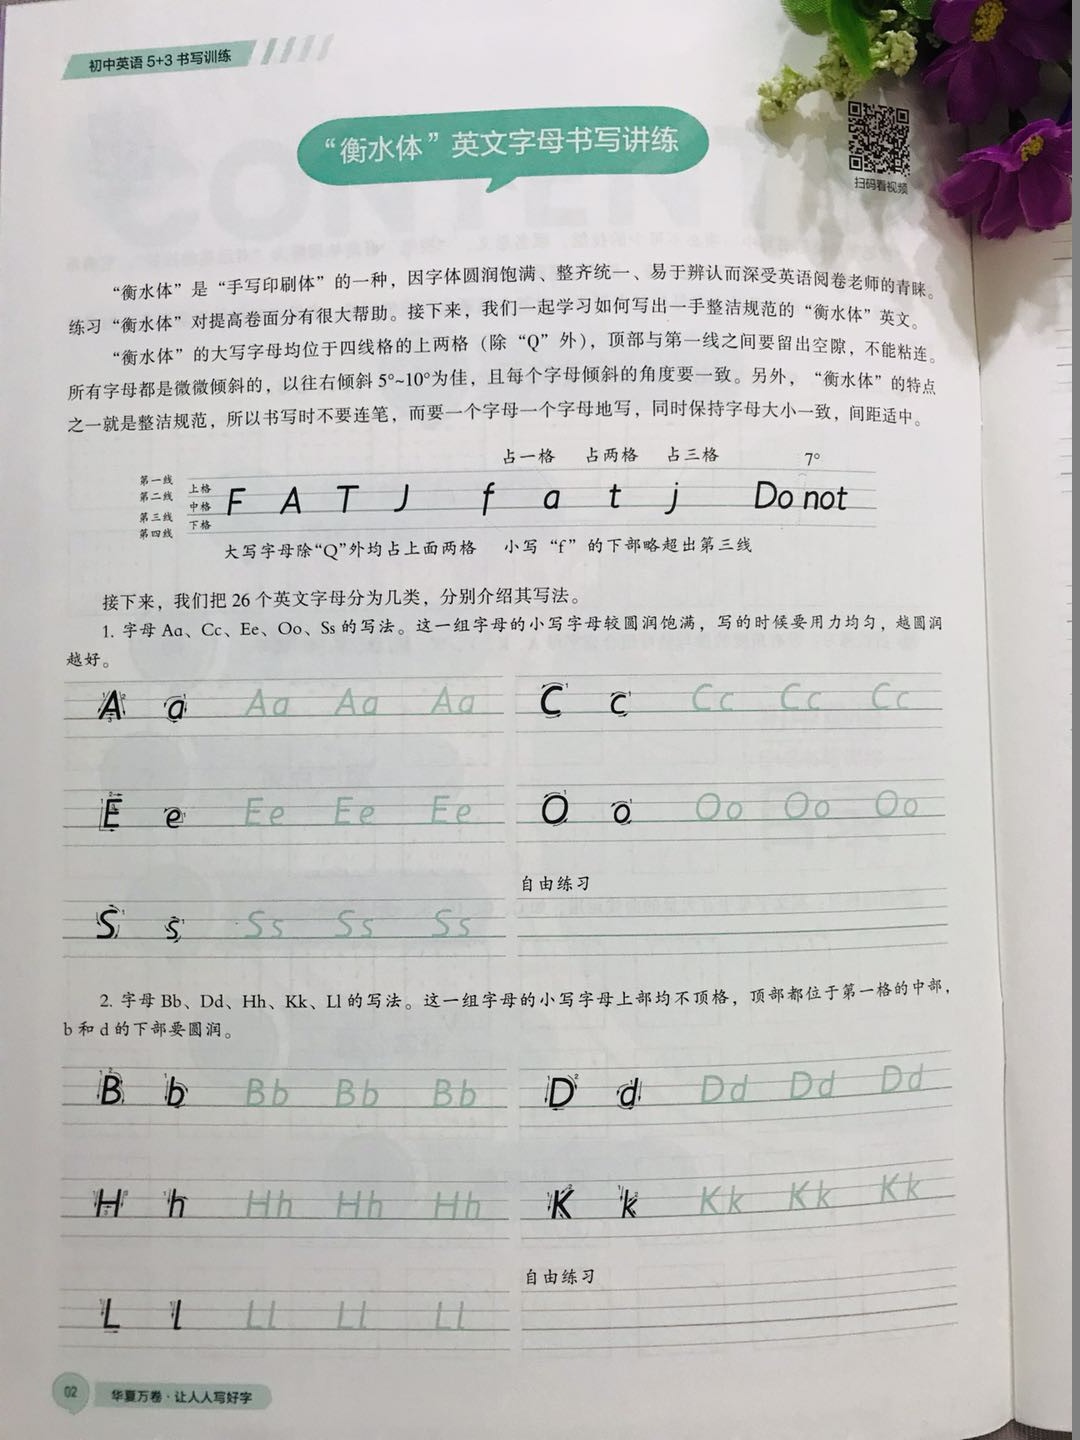 初中英语 5+3 书写训练
“衡水体”英文字母书写讲练
扫码看视频
“衡水体”是“手写印刷体”的一种，因字体圆润饱满、整齐统一、易于辨认而深受英语阅卷老师的青睐。
练习“衡水体”对提高卷面分有很大帮助。接下来，我们一起学习如何写出一手整洁规范的“衡水体”英文。
“衡水体”的大写字母均位于四线格的上两格（除“Q”外），顶部与第一线之间要留出空隙，不能粘连。
所有字母都是微微倾斜的，以往右倾斜 5°~10°为佳，且每个字母倾斜的角度要一致。另外，“衡水体”的特点
之一就是整洁规范，所以书写时不要连笔，而要一个字母一个字母地写，同时保持字母大小一致，间距适中。
占一格 占两格 占三格 7°
第一线
第二线 上格
第三线 中格
第四线 下格
F A T J f a t j Do not
大写字母除“Q”外均占上面两格 小写“f”的下部略超出第三线
接下来，我们把 26 个英文字母分为几类，分别介绍其写法。
1. 字母 Aa、Cc、Ee、Oo、Ss 的写法。这一组字母的小写字母较圆润饱满，写的时候要用力均匀，越圆润
越好。
A a Aa Aa Aa C c Cc Cc Cc
E e Ee Ee Ee O o Oo Oo Oo
自由练习
S s Ss Ss Ss
2. 字母 Bb、Dd、Hh、Kk、Ll 的写法。这一组字母的小写字母上部均不顶格，顶部都位于第一格的中部，
b 和 d 的下部要圆润。
B b Bb Bb Bb D d Dd Dd Dd
H h Hh Hh Hh K k Kk Kk Kk
自由练习
L l Ll Ll Ll
02 华夏万卷·让人人写好字